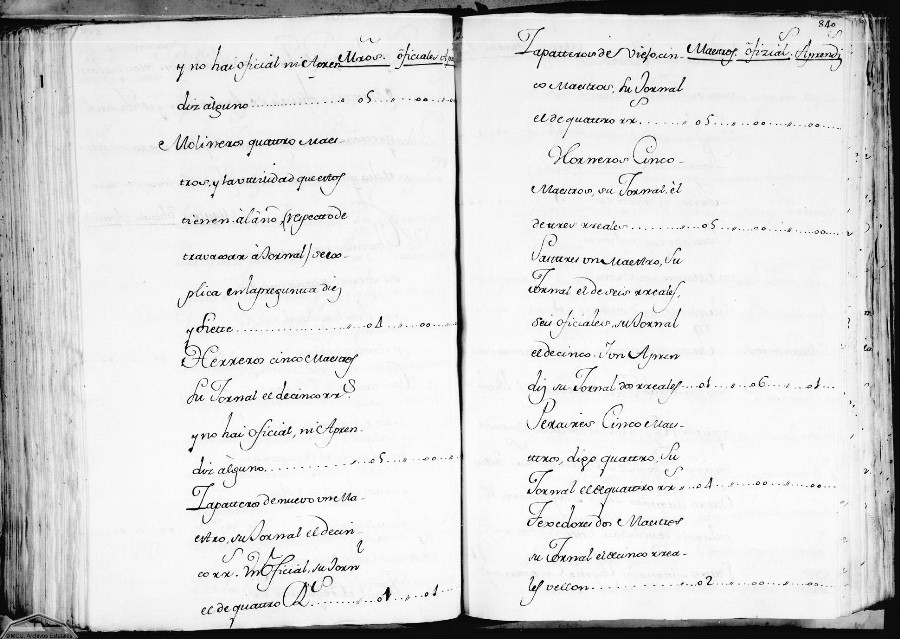 Mros. oficiales Apn
y no hai oficial ni Apren
diz àlguno ........ 05 ... 00 ... 00
Molineros quattro Maes-
tros, y la vttilidad que estos
tienen àl año (respecto de
travaxar à Jornal) se ex-
plica en la pregunta diez
y siette ........ 04 ... 00
Herreros cinco Maestros
su Jornal el de cinco rrs.
y no hai oficial, ni Apren-
diz àlguno ........ 05 ... 00 ... 00
Zapatteros de nuevo vn Ma-
estro, su Jornal el de cin-
co rrs. Vn Oficial, su Jorn
el de quattro Rs ........ 01 ... 01
840
Maestros. ofizials. Aprendizs
Zapatteros de Viejo, cin-
co Maestros, su Jornal
el de quattro rrs ........ 05 ... 00 ... 00
Horneros Cinco
Maestros, su Jornal èl
de tres rreales ........ 05 ... 00 ... 00
Sastres vn Maestro, su
Jornal el de seis rreales,
seis oficiales, su Jornal
el de cinco. Y vn Apren
diz su Jornal dos rreales ... 01 ... 06 ... 01
Peraires Cinco Maes-
ttros, digo quattro, su
Jornal el de quattro rrs ... 04 ... 00 ... 00
Texedores dos Maestros
su Jornal el cinco rrea-
les vellon ........ 02 ... 00 ... 00
©MCU. Archivos Estatales